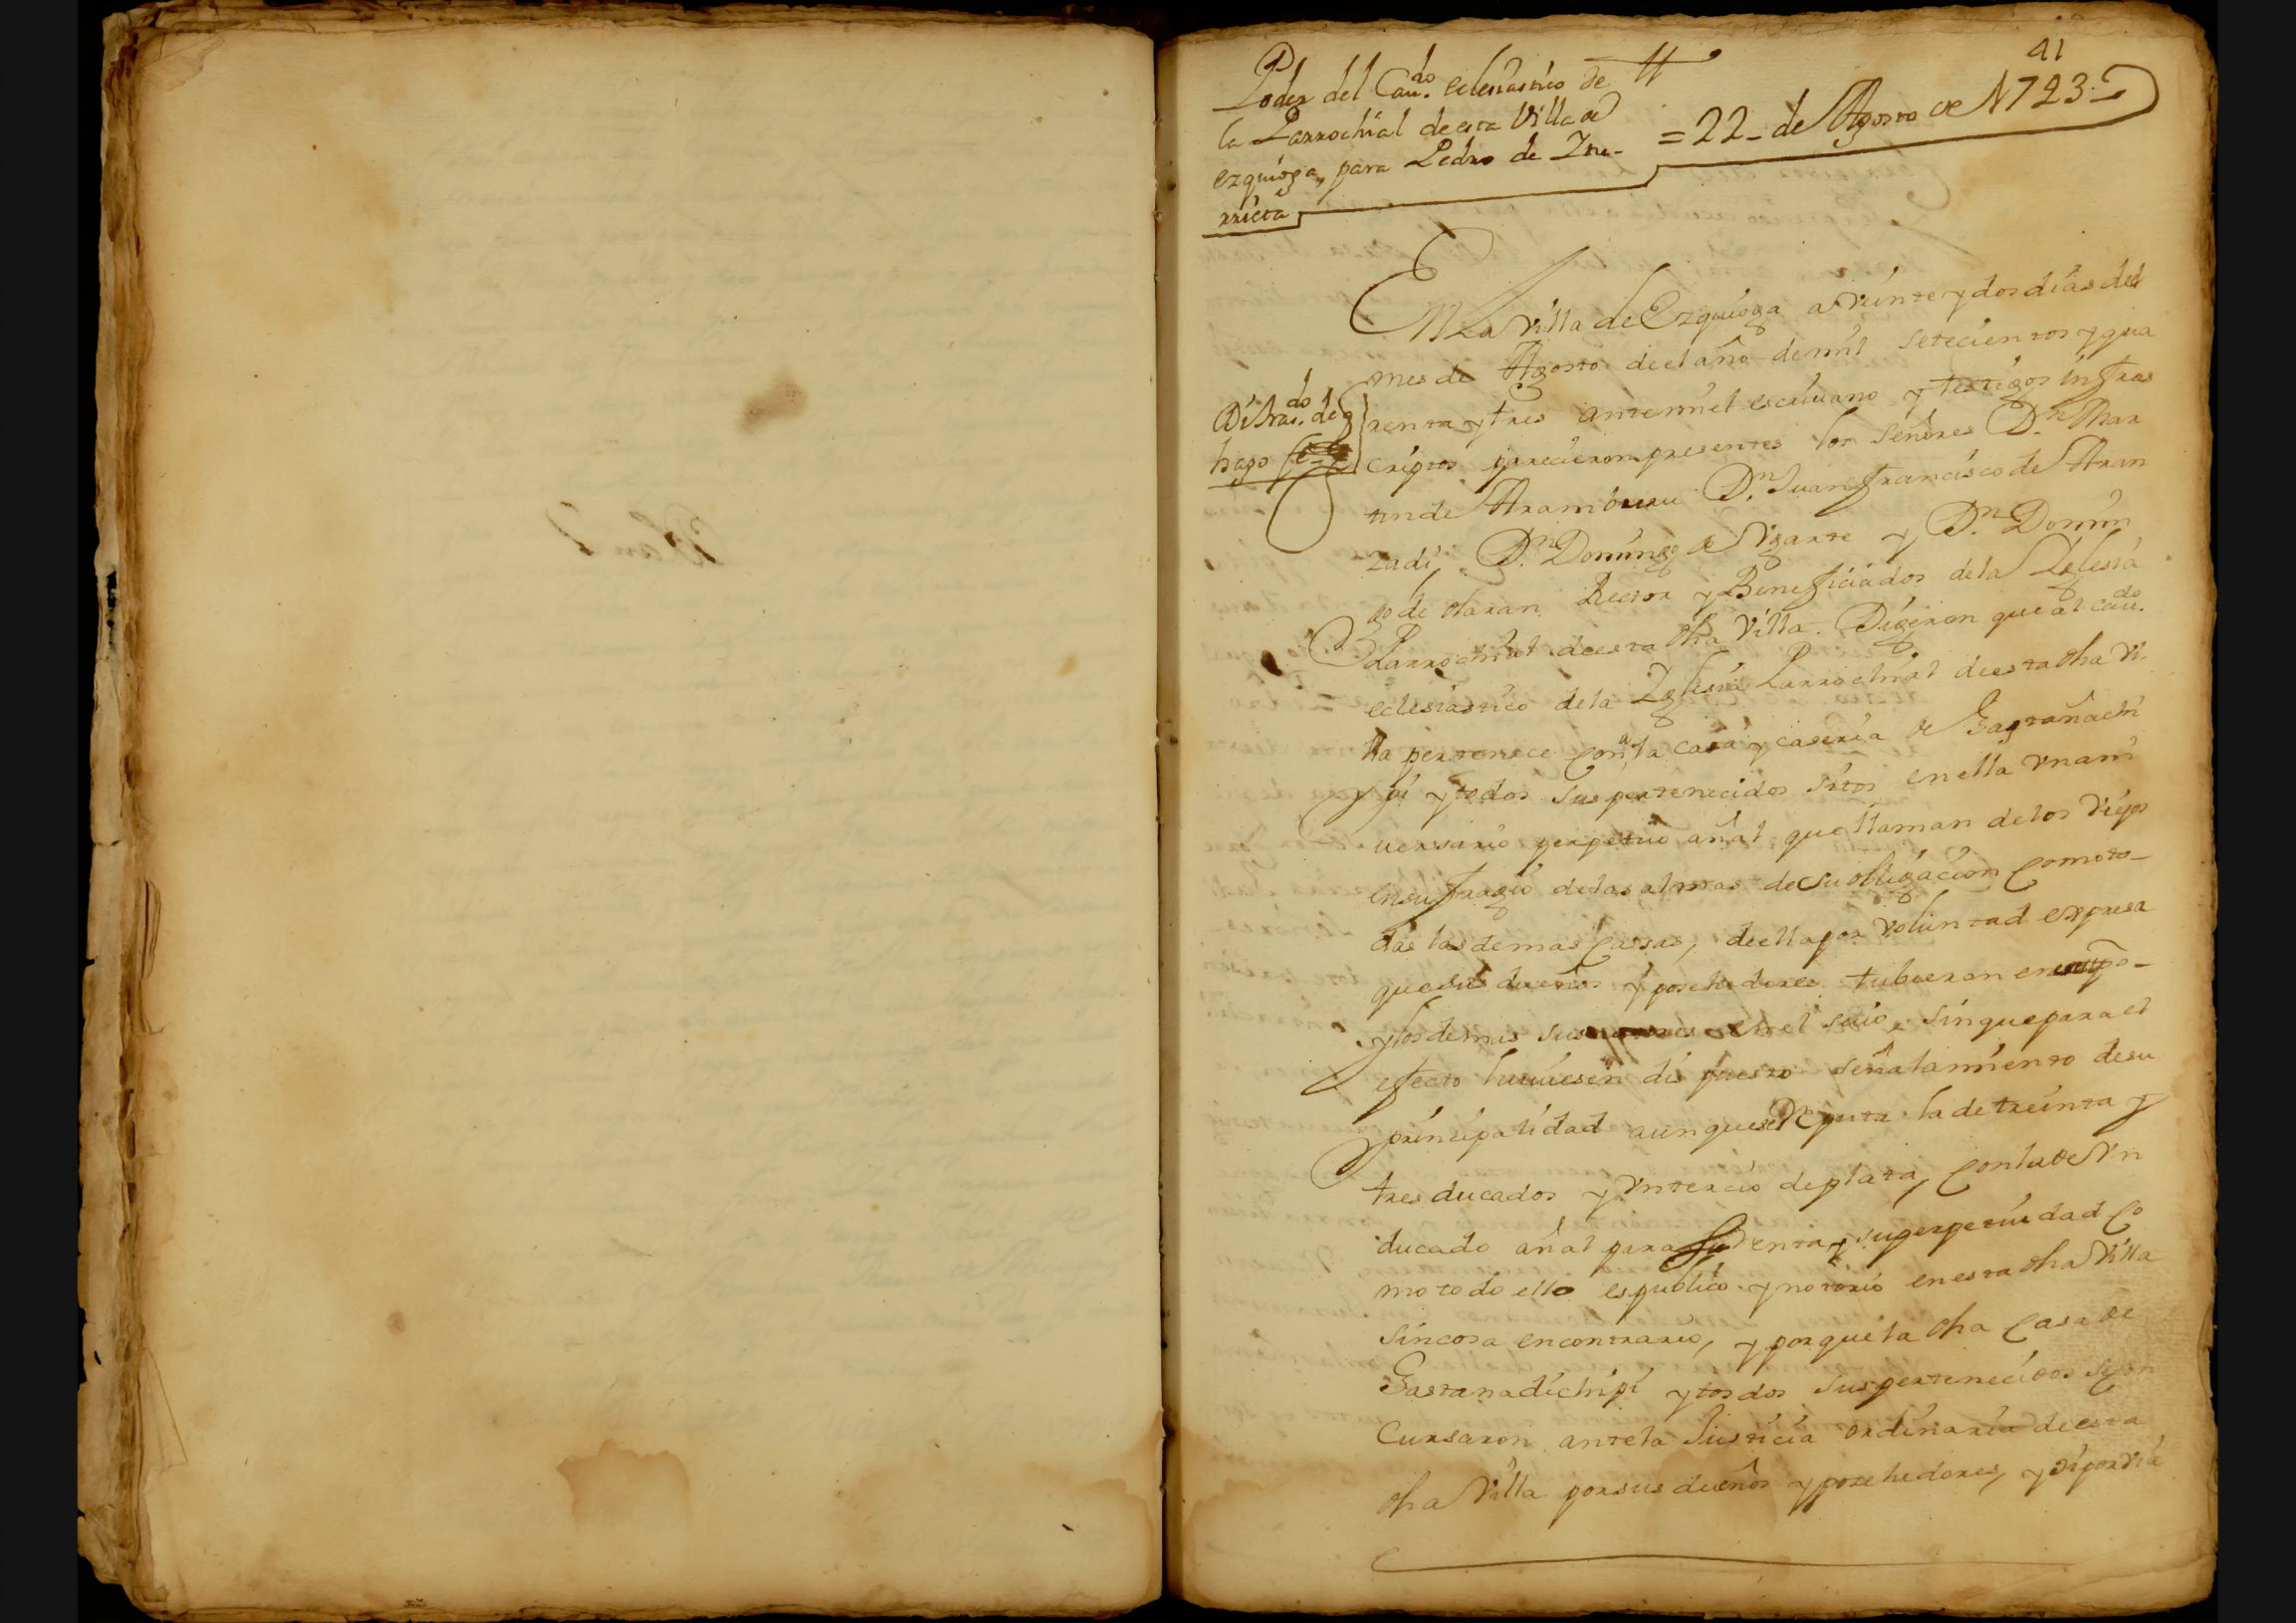 41
Poder del Cau.do eclesiastico de
la Parrochial de esta Villa de
ezquioga, para Pedro de Yru-
rrieta
= 22 - de Agosto de 1743 -
En La Villa de Ezquioga a Veinte y dos dias del
mes de Agosto de el año de mil setecientos y qua
renta y tres ante mi el escriuano y testigos infras
criptos parecieron presentes los señores Dn. Mar
tin de Aramburu Dn. Juan Francisco de Aran
zadi, Dn. Domingo de Vgarte y Dn. Domin
go de olaran Rector y Beneficiados de la Yglesia
Parrochial de esta dha Villa. Digeron que al cau.do
eclesiastico de la Yglesia Parrochial de esta dha Vi-
lla pertenece contra la casa y caseria de
pi y todos sus pertenecidos sitos en ella Vn ani
uersario perpetuo añal que llaman de los Viejos
en sufragio de las almas de su obligacion como to-
das las demas Cassas, de ella por Voluntad expresa
que sus dueños y posehedores tubieron en
y los demis sus el suio, sin que para el
efecto huuiesen dispuesto señalamiento de su
principalidad aunque se Reputa la de treinta y
tres ducados y Vn tercio de plata, con la de Vn
ducado añal para su Renta y su perpetuidad Co
mo todo ello es publico y notorio en esta dha Villa
sin cosa en contrario, y por que la dha Casa de
Gastanadichipi y todos sus pertenecidos se con
Cursaron ante la Justicia ordinaria de esta
dha Villa por sus dueños y posehedores, y
hago